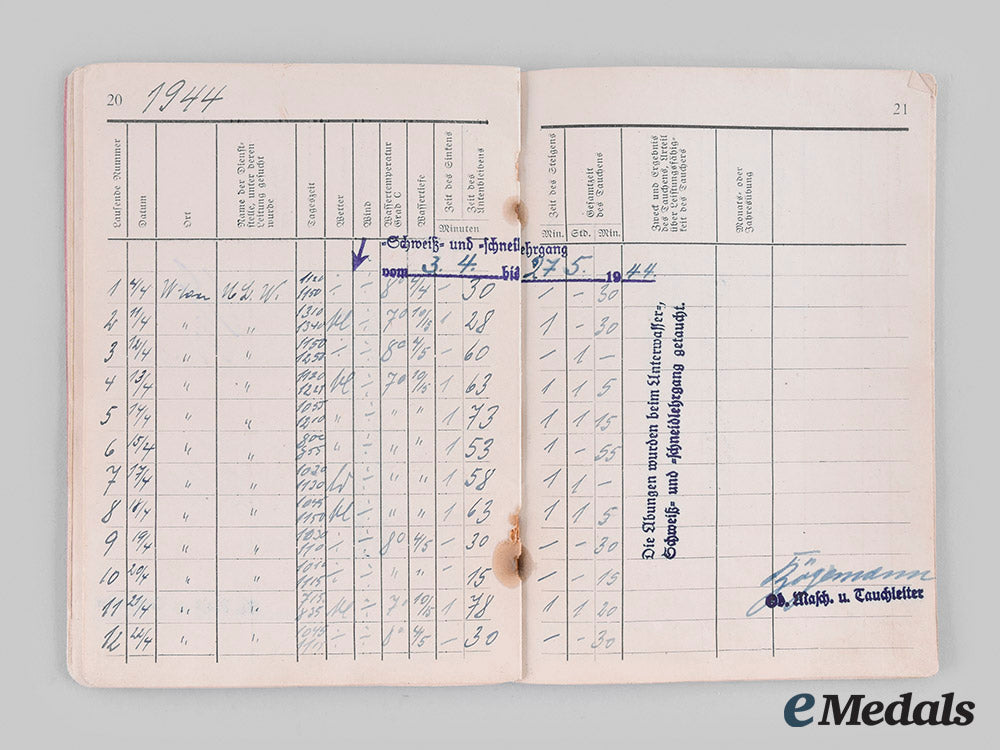 20 1944
Laufende Nummer
Datum
Ort
Name der Dienst-
stelle, unter deren
Leitung gesucht
wurde
Tageszeit
Wetter
Wind
Wassertemperatur
Grad C
Wassertiefe
Zeit des Sinkens
Zeit des
Untenbleibens
Minuten
21
Zeit des Steigens
Gesamtzeit
des Tauchens
Min. Std. Min.
Zweck und Ergebnis
des Tauchens, Urteil
über Leistungsfähig-
keit des Tauchers
Monats- oder
Jahresübung
-Schweiß- und -schneidlehrgang
vom 3. 4. bis 27 5. 1944.
1 4/4 30 – – 30
2 11/4 " " 1310 1340 7° 10/15 1 28 1 – 30
3 12/4 " " 1150 1250 ÷ ÷ 8° 4/5 – 60 – 1 –
4 13/4 " " 1120 1221 ÷ 7° 10/15 1 63 1 1 5
5 14/4 " " 1055 1210 " ÷ " " 1 73 1 1 15
6 15/4 " " 800 855 " ÷ " " 1 53 1 – 55
7 17/4 " " 1030 1130 ÷ " " 1 58 1 1 –
8 18/4 " " 1045 1150 ÷ " " 1 63 1 1 5
9 19/4 " " 1030 1110 ÷ ÷ 8° 4/5 – 30 – – 30
10 20/4 " " ÷ ÷ " " – 15 – – 15
11 21/4 " " 715 835 ÷ 7° 10/15 1 78 1 1 20
12 22/4 " " 1045 1115 ÷ ÷ 8° 4/5 – 30 – – 30
Die Übungen wurden beim Unterwasser-,
Schweiß- und -schneidlehrgang getaucht.
Bögemann
Ob. Masch. u. Tauchleiter
eMedals